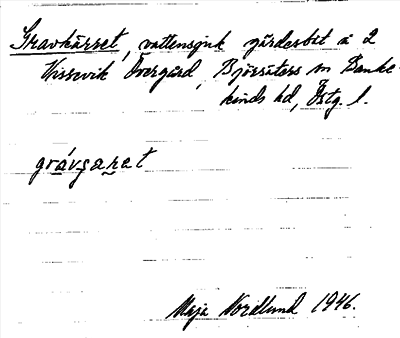 Gravkärret, vattensjuk gärdesbit å 2
Vissevik Övergård, Björsäters sn Banke-
kinds hd, Östg. l.
grávʒaʀet
Maja Nordlund 1946.